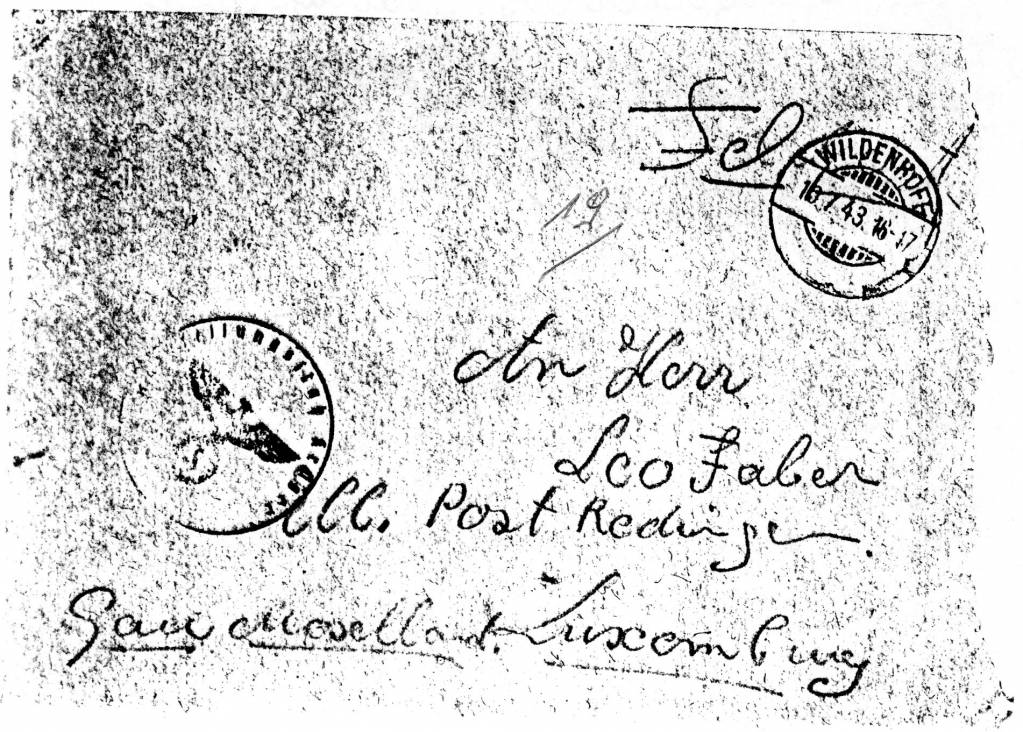 WILDENROF
16.7.43. 16-17
19
An Herr
Leo Faber
Post Redingen.
Gau Moselland. Luxemburg